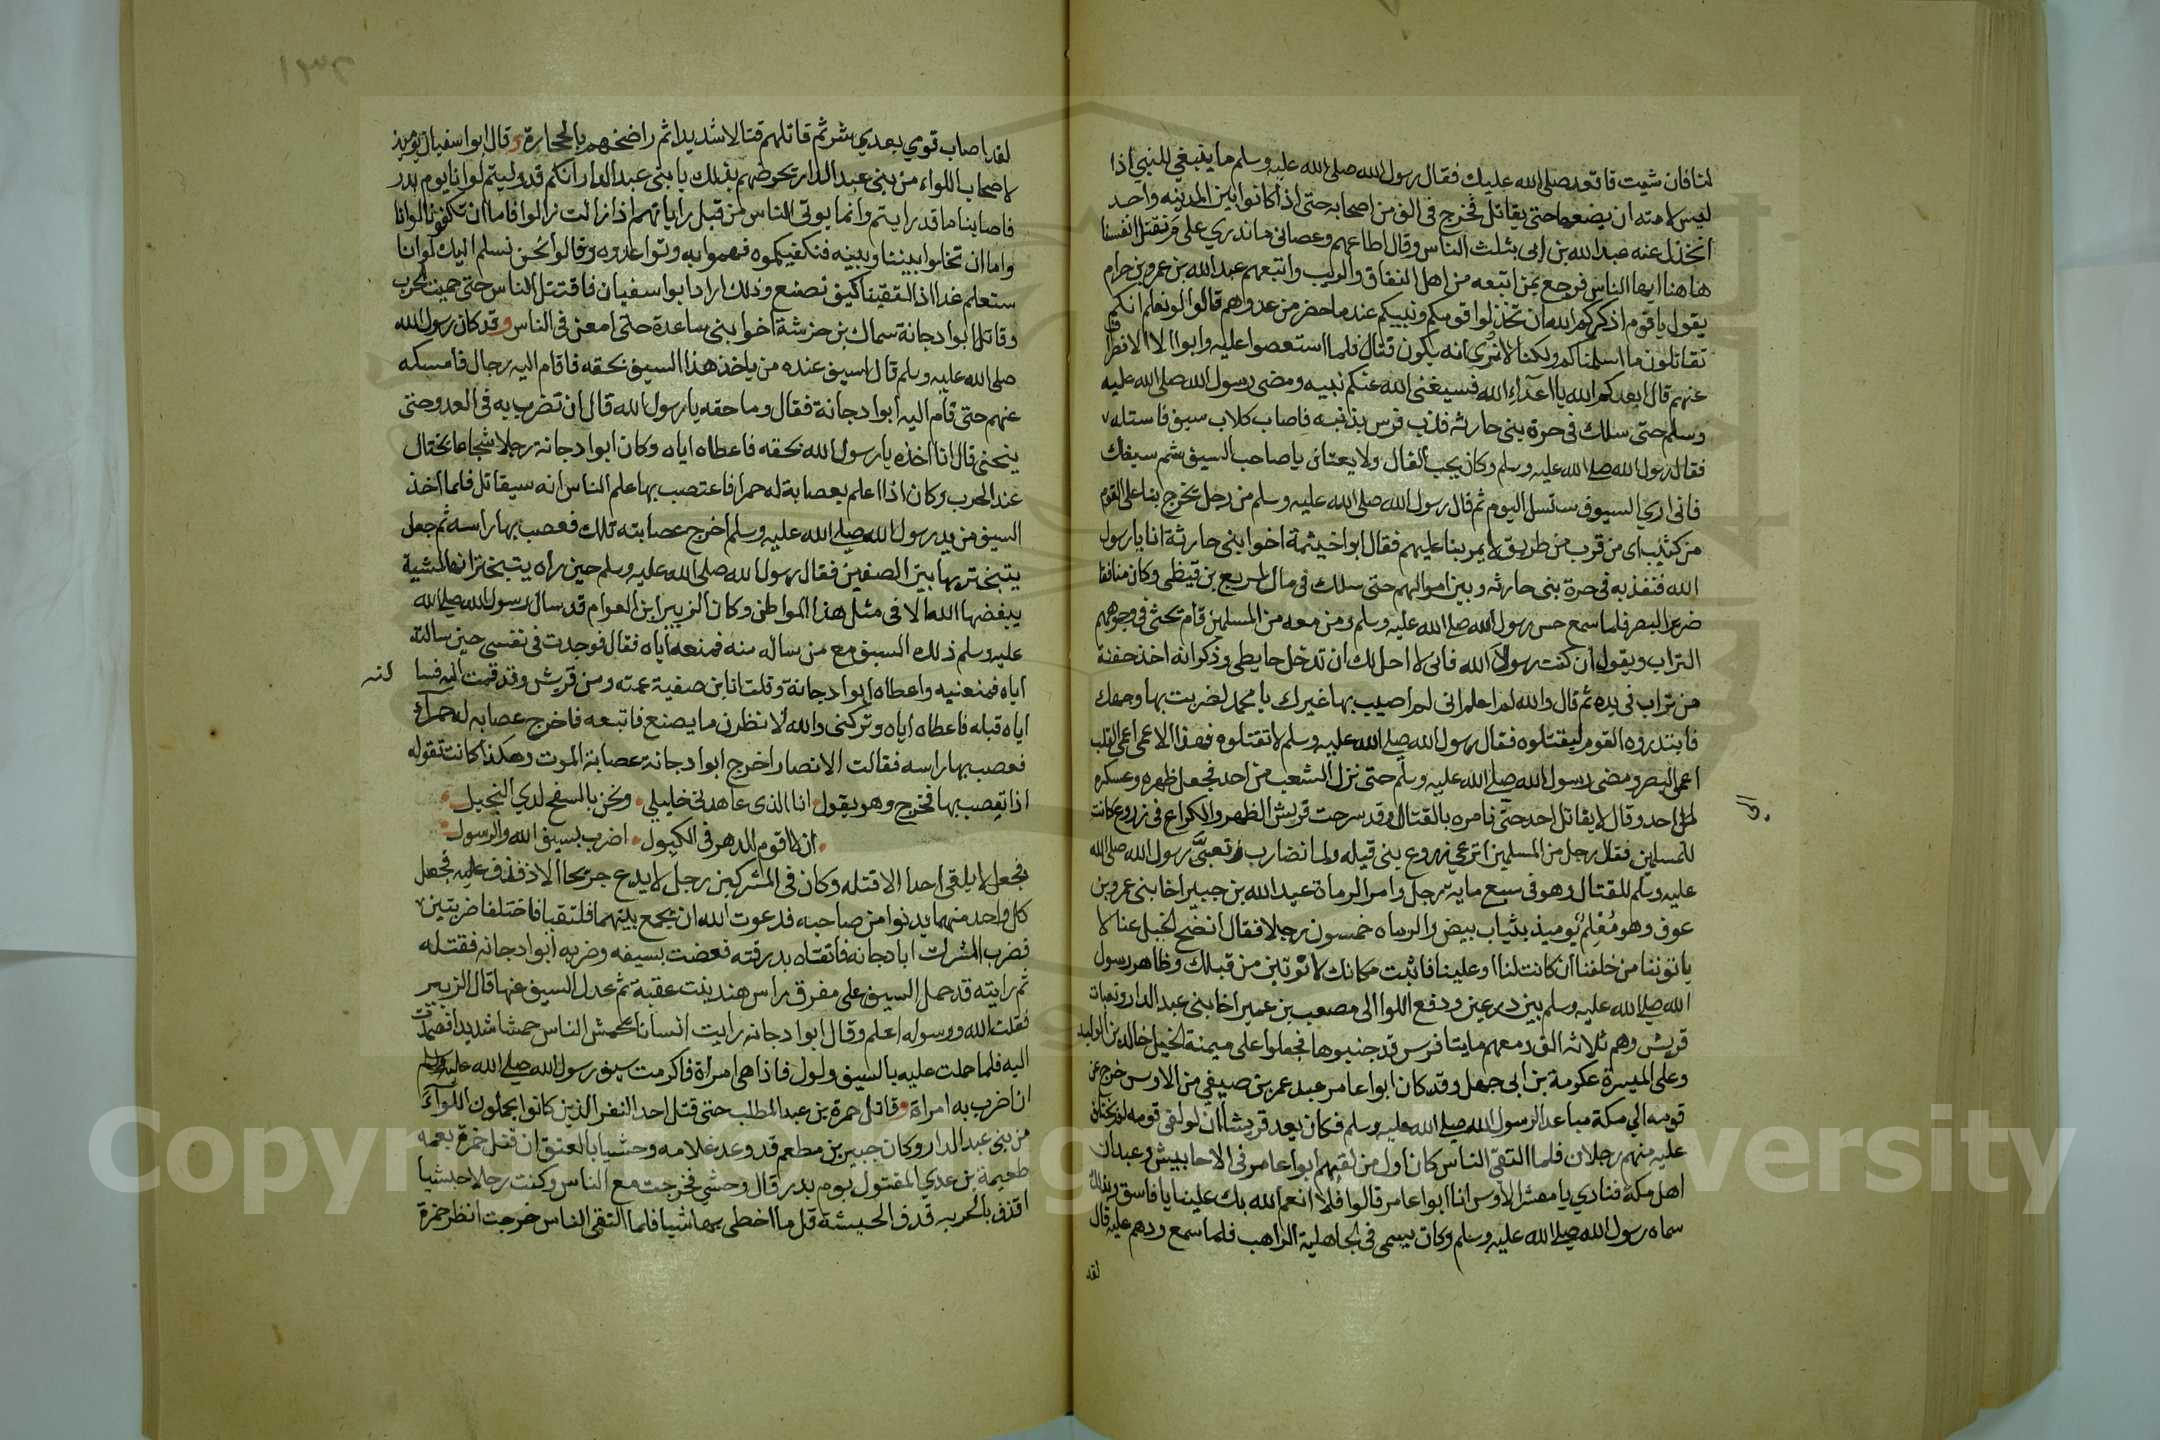 لنا فان شيت فاقعد صلى الله عليك فقال رسول الله صلى الله عليه وسلم ما ينبغي للنبي اذا
لبس لامته ان يضعها حتى يقاتل فخرج في الف من اصحابه حتى اذا كانوا بين المدينه واحد
انخذل عنه عبد الله بن ابي بثلث الناس وقال اطاعهم وعصاني ما ندري على م نقتل انفسنا
هاهنا ايها الناس فرجع بمن اتبعه من اهل النفاق والريب واتبعهم عبد الله بن عمرو بن حرام
يقول يا قوم اذكركم الله ان تخذلوا قومكم ونبيكم عند ما حضر من عدوهم قالوا لو نعلم انكم
تقاتلون ما اسلمناكم ولكنا لا نرى انه يكون قتال فلما استعصوا عليه وابوا الا الانصراف
عنهم قال ابعدكم الله يا اعداء الله فسيغني الله عنكم نبيه ومضى رسول الله صلى الله عليه
وسلم حتى سلك في حرة بني حارثه فذب فرس بذنبه فاصاب كلاب سيف فاستله
فقال رسول الله صلى الله عليه وسلم وكان يحب الفال ولا يعتاف يا صاحب السيف شم سيفك
فاني اري السيوف ستسل اليوم ثم قال رسول الله صلى الله عليه وسلم من رجل يخرج بنا على القوم
من كثب اى من قرب من طريق لا يمر بنا عليهم فقال ابوا خيثمة اخوا بني حارثة انا يا رسول
الله فنفذ به في حرة بني حارثه وبين اموالهم حتى سلك في مال لمربع بن قيظي وكان منافقا
ضرير البصر فلما سمع حس رسول الله صلى الله عليه وسلم ومن معه من المسلمين قام يحثى في وجوههم
التراب ويقول ان كنت رسول الله فاني لا احل لك ان تدخل حايطي وذكر انه اخذ حفنة
من تراب في يده ثم قال والله لو اعلم اني لا اصيب بها غيرك يا محمد لضربت بها وجهك
فابتدروه القوم ليقتلوه فقال رسول الله صلى الله عليه وسلم لا تقتلوه فهذا الاعمى اعمى القلب
اعمى البصر ومضى رسول الله صلى الله عليه وسلم حتى نزل الشعب من احد فجعل ظهره وعسكره
الى احد وقال لا يقاتل احد حتى نامره بالقتال وقد سرحت قريش الظهر والكراع في زروع كانت
للمسلمين فقال رجل من المسلمين اترعي زروع بني قيله ولما نضارب وتعبى رسول الله صلى الله
عليه وسلم للقتال وهو في سبع مايه رجل وامر الرماة عبد الله بن جبير اخا بني عمرو بن
عوف وهو معلم يوميذ بثياب بيض والرماه خمسون رجلا فقال انضح الخيل عنا لا
ياتوننا من خلفنا ان كانت لنا او علينا فاثبت مكانك لا نوتين من قبلك وظاهر رسول
الله صلى الله عليه وسلم بين درعين ودفع اللوا الى مصعب بن عمير اخا بني عبد الدار وتعبات
قريش وهم ثلاثه الف ومعهم مايتا فرس قد جنبوها فجعلوا على ميمنة الخيل خالد بن الوليد
وعلى الميسرة عكرمة بن ابي جهل وقد كان ابوا عامر عبد عمر بن صيفي من الاوس خرج عن
قومه الي مكة مباعدا لرسول الله صلى الله عليه وسلم فكان يعد قريشا ان لو لقى قومه لم يختلف
عليه منهم رجلان فلما التقى الناس كان اول من لقيهم ابوا عامر في الاحابيش وعبدان
اهل مكة فنادي يا معشر الاوس انا ابوا عامر قالوا فلا انعم الله بك علينا يا فاسق وبذلك
سماه رسول الله صلى الله عليه وسلم وكان يسمى في الجاهلية الراهب فلما سمع ردهم عليه قال
لقد
لقد اصاب قومي بعدي شر ثم قاتلهم قتالا شديدا ثم راضخهم بالحجارة وقال ابوا سفيان يوميذ
لاصحاب اللواء من بني عبد الدار يحرضهم بذلك يا بني عبد الدار انكم قد وليتم لوانا يوم بدر
فاصابنا ما قد رايتم وانما يوتى الناس من قبل راياتهم اذا زالت زالوا فاما ان تكفونا لوانا
واما ان تخلوا بيننا وبينه فنكفيكموه فهموا به وتواعدوه وقالوا نحن نسلم اليك لوانا
ستعلم غدا اذا التقينا كيف نصنع وذلك اراد ابوا سفيان فاقتتل الناس حتى حميت الحرب
وقاتل ابوا دجانة سماك بن خرشة اخوا بني ساعدة حتى امعن في الناس وقد كان رسول الله
صلى الله عليه وسلم قال لسيف عنده من ياخذ هذا السيف بحقه فاقام اليه رجال فامسكه
عنهم حتى قام اليه ابوا دجانة فقال وما حقه يا رسول الله قال ان تضرب به في العدو حتى
ينحني قال انا اخذه يا رسول الله بحقه فاعطاه اياه وكان ابوا دجانه رجلا شجاعا يختال
عند الحرب وكان اذا اعلم بعصابة له حمرا فاعتصب بها علم الناس انه سيقاتل فلما اخذ
السيف من يد رسول الله صلى الله عليه وسلم اخرج عصابته تلك فعصب بها راسه ثم جعل
يتبختر بها بين الصفين فقال رسول الله صلى الله عليه وسلم حين راه يتبختر انها لمشية
يبغضها الله الا في مثل هذا المواطن وكان الزبير ابن العوام قد سال رسول الله صلى الله
عليه وسلم ذلك السيف مع من ساله منه فمنعه اياه فقال فوجدت في نفسي حين سالته
اياه فمنعنيه واعطاه ابوا دجانة وقلت انا ابن صفية عمته ومن قريش وقد قمت اليه فسالته
اياه قبله فاعطاه اياه وتركني والله لانظرن ما يصنع فاتبعه فاخرج عصابه له حمراء
فعصب بها راسه فقالت الانصار اخرج ابوا دجانه عصابة الموت وهكذا كانت تقوله
اذا تعصب بها فخرج وهو يقول انا الذي عاهدني خليلي ونحن بالسفح لدي النخيل
ان لا اقوم الدهر في الكيول اضرب بسيف الله والرسول
فجعل لا يلقى احدا الا قتله وكان في المشركين رجل لا يدع جريحا الا ذفف عليه فجعل
كل واحد منهما يدنوا من صاحبه فدعوت الله ان يجمع بينهما فالتقيا فاختلفا ضربتين
فضرب المشرك ابا دجانه فاتقاه بدرقته فعضت بسيفه وضربه ابوا دجانه فقتله
ثم رايته قد حمل السيف على مفرق راس هند بنت عقبة ثم عدل السيف عنها قال الزبير
فقلت الله ورسوله اعلم وقال ابوا دجانه رايت انسانا يحمش الناس حمشا شديدا فصمدت
اليه فلما حملت عليه بالسيف ولول فاذا هي امراة فاكرمت سيف رسول الله صلى الله عليه وسلم
ان اضرب به امراة وقاتل حمزة بن عبد المطلب حتى قتل احد النفر الذين كانوا يحملون اللواء
من بني عبد الدار وكان جبير بن مطعم قد وعد غلامه وحشيا بالعتق ان قتل حمزة بعمه
طعيمة بن عدي المقتول يوم بدر قال وحشي فخرجت مع الناس وكنت رجلا حبشيا
اقذف بالحربه قذف الحبشة قل ما اخطي بها شيا فلما التقى الناس خرجت انظر حمزة